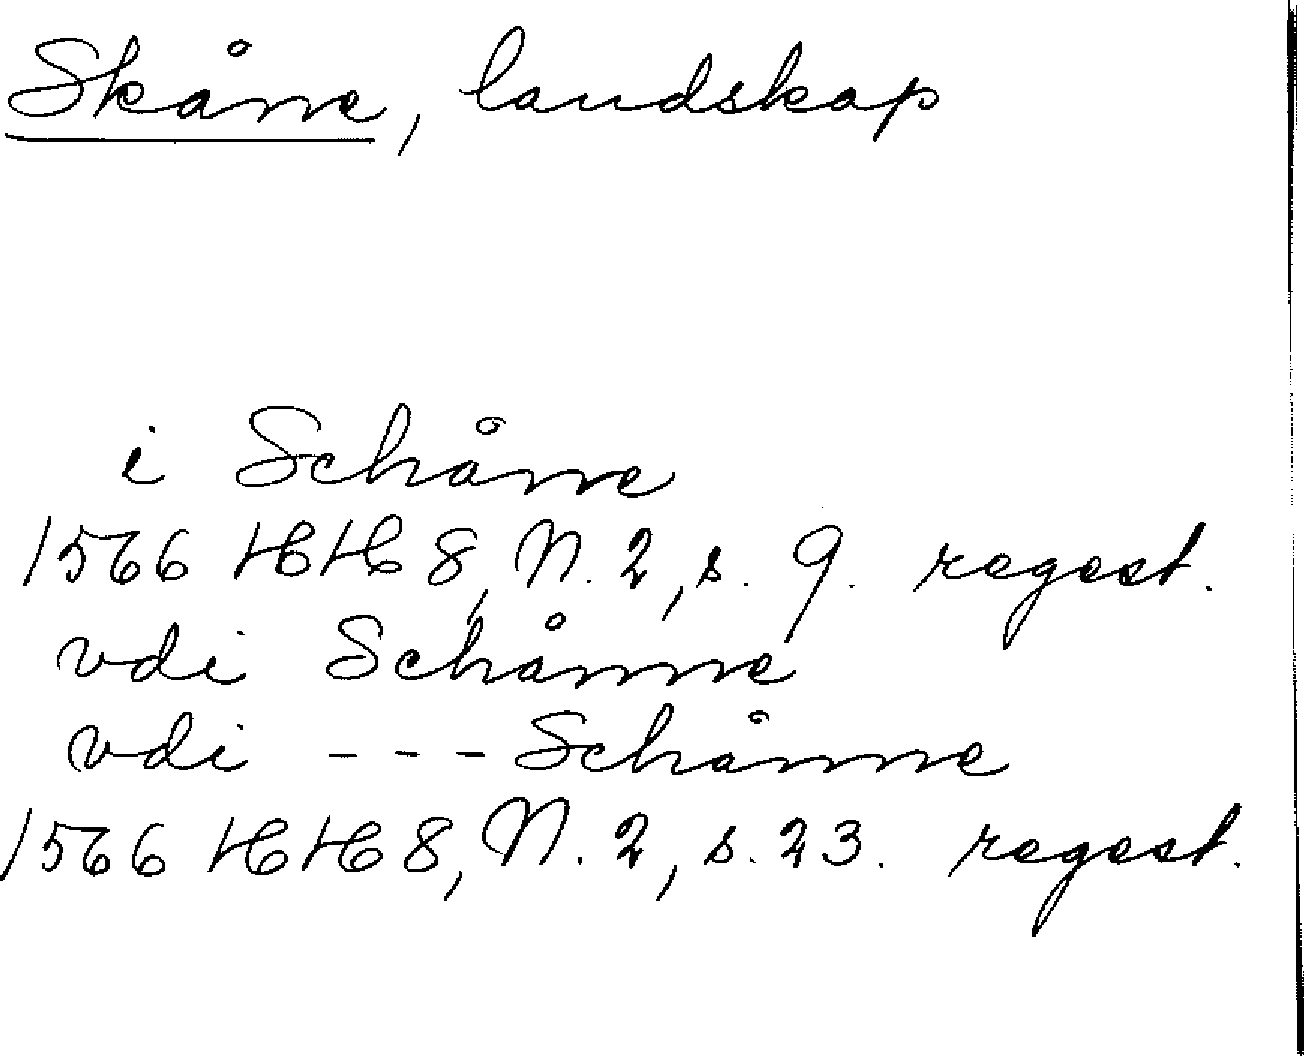 Skåne, landskap
i Schåne
1566 HH 8, N. 2, s. 9. regest.
vdi Schånne
vdi --- Schånne
1566 HH 8, N. 2, s. 23. regest.